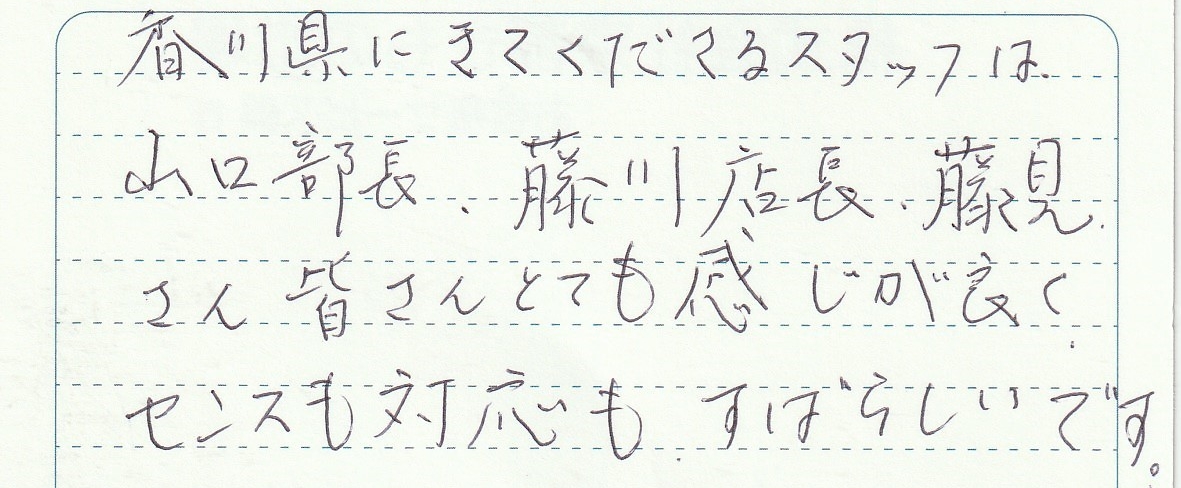 香川県にきてくださるスタッフは、
山口部長、藤川店長、藤見
さん皆さんとても感じが良く、
センスも対応も、すばらしいです。